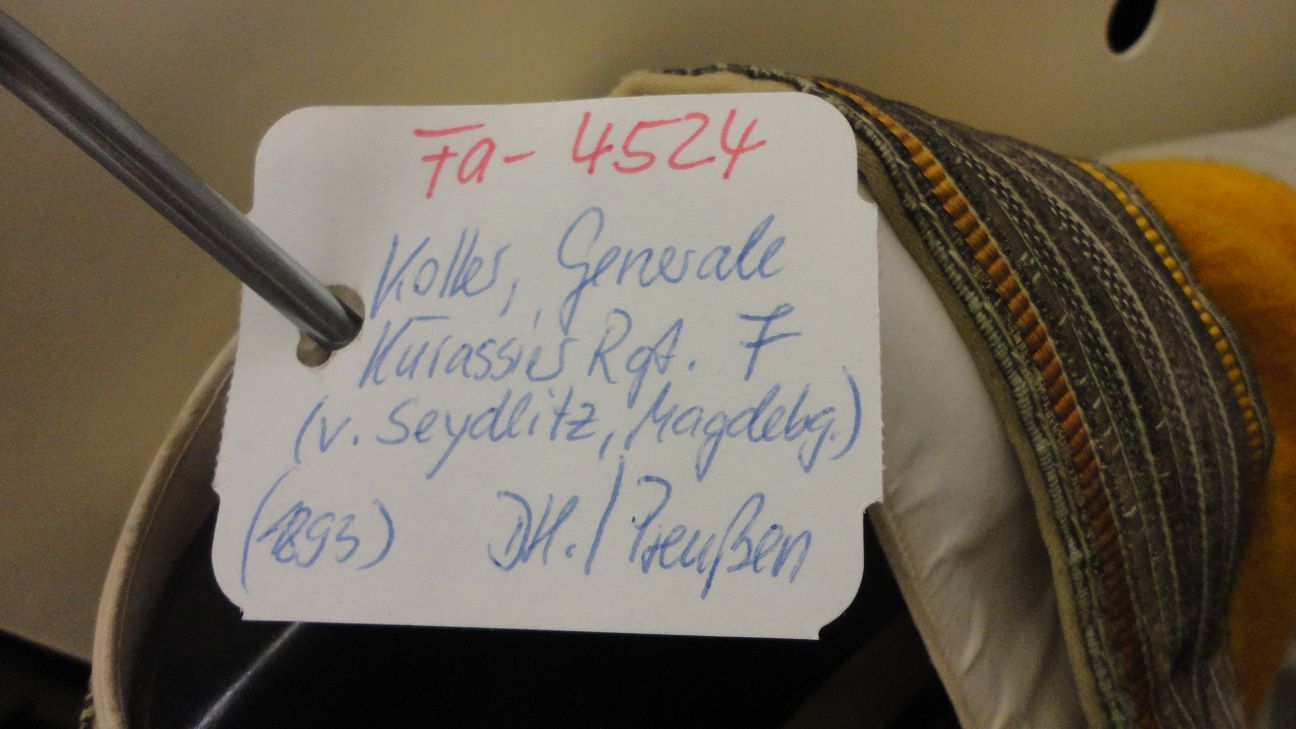 Fa- 4524
Koller, Generale
Kürassier Rgt. 7
(v. Seydlitz, Magdebg.)
(1893) Dtl. / Preußen